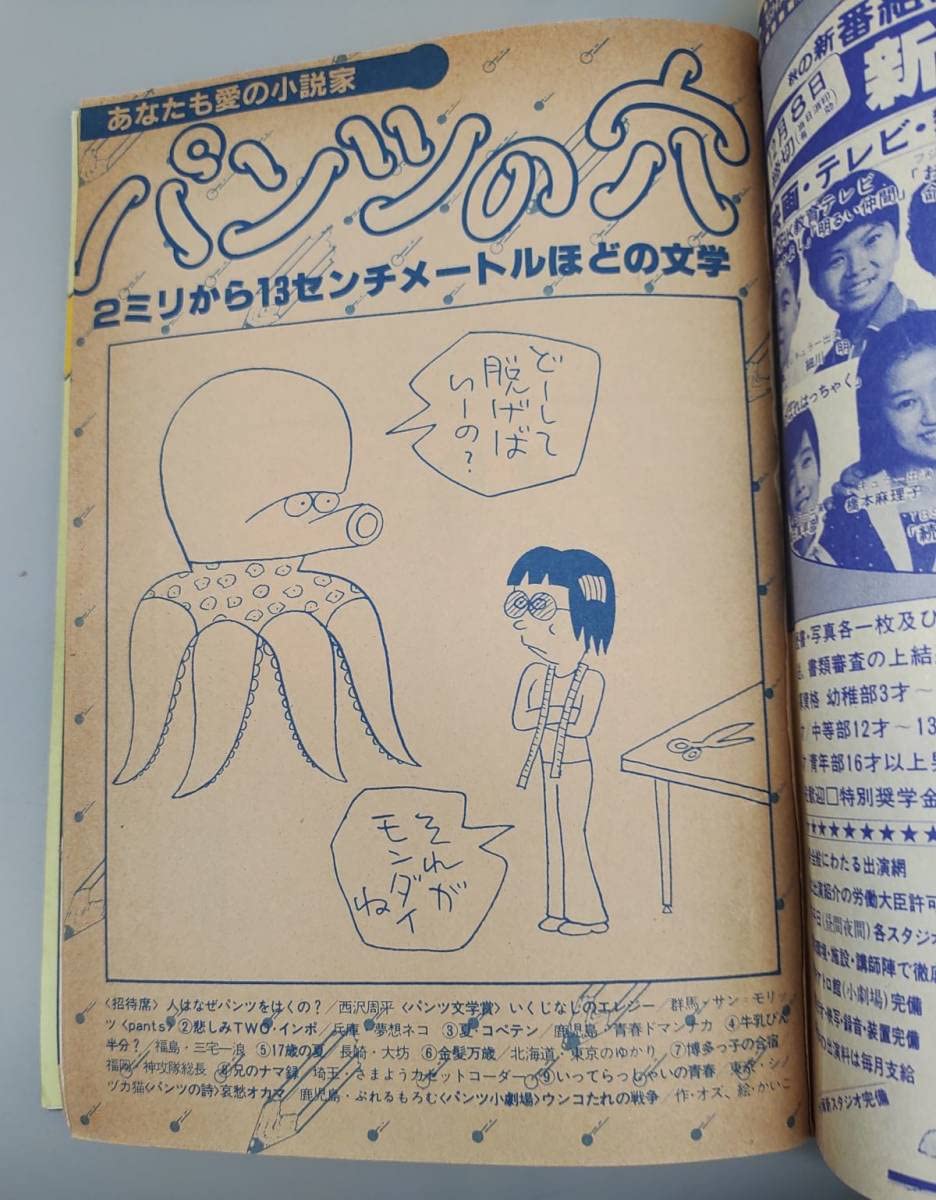 あなたも愛の小説家
パンツの穴
2ミリから13センチメートルほどの文学
どーして
脱げば
いーの?
それが
モンダイ
ね
〈招待席〉人はなぜパンツをはくの?/西沢周平〈パンツ文学賞〉いくじなしのエレジー/群馬・サン=モリッ
ツ〈pants〉②悲しみTWO・インポ/兵庫・夢想ネコ ③夏・コペテン/鹿児島・青春ドマンナカ ④牛乳びん
半分?/福島・三宅一浪 ⑤17歳の夏/長崎・大坊 ⑥金髪万歳/北海道・東京のゆかり ⑦博多っ子の合宿
福岡・神攻隊総長 ⑧兄のナマ録/埼玉・さまようカセットコーダー ⑨いってらっしゃいの青春/東京・シノ
ヅカ猫〈パンツの詩〉哀愁オカマ/鹿児島・ぷれるもろむ〈パンツ小劇場〉ウンコたれの戦争/作・オズ、絵・かいこ
秋の新番組
新
月8日
切
映画・テレビ・
教育テレビ
「明るい仲間」
細川 明
はっちゃく」
橋本麻理子
「続
書・写真各一枚及び
書類審査の上結
資格 幼稚部3才～
中等部12才～13
青年部16才以上男
歓迎□特別奨学金
★★★★★★★★
にわたる出演網
出演紹介の労働大臣許可
日(昼間夜間)各スタジオ
・施設・講師陣で徹底
館(小劇場)完備
写・録音・装置完備
出演料は毎月支給
スタジオ完備